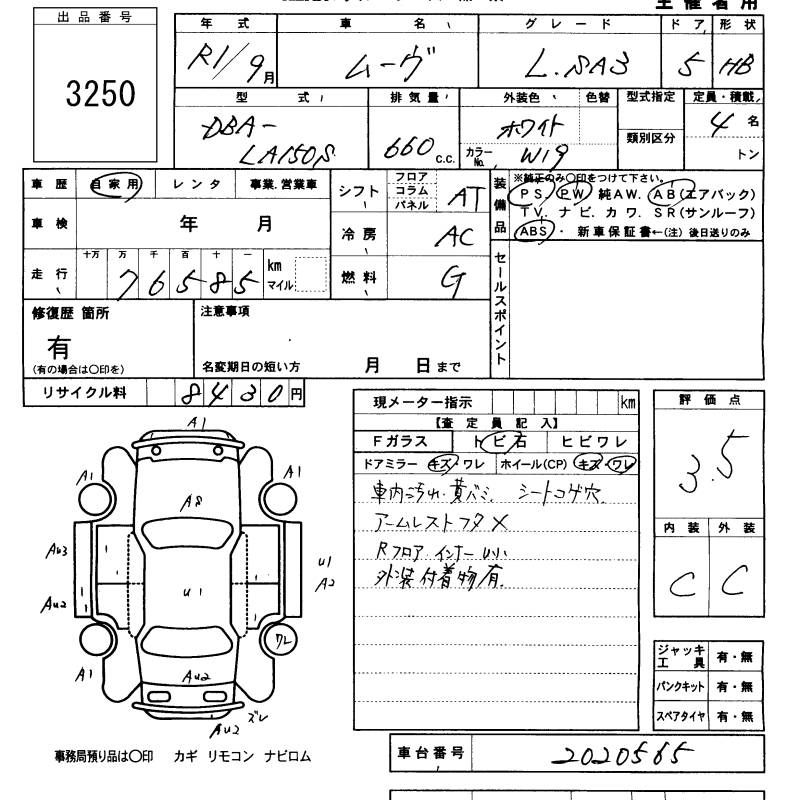 主催者用
出品番号
3250
年式 車名 グレード ドア 形状
R1/9月 ムーヴ L.SA3 5 HB
型式 排気量 外装色 色替 型式指定 定員・積載
DBA-LA150S 660c.c. ホワイト 類別区分 4名
カラーNo. W19 トン
車歴 自家用 レンタ 事業.営業車
シフト フロア コラム パネル AT
装備品 ※純正のみ〇印をつけて下さい。
PS. PW. 純AW. AB(エアバック)
TV. ナビ. カワ. SR(サンルーフ)
ABS・ 新車保証書←(注) 後日送りのみ
車検 年 月
冷房 AC
走行 十万 万 千 百 十 一
76585 km マイル
燃料 G
セールスポイント
修復歴 箇所
有
(有の場合は〇印を)
注意事項
名変期日の短い方 月 日まで
リサイクル料 8430円
現メーター指示 km
【査定員記入】
Fガラス トビ石 ヒビワレ
ドアミラー キズ・ワレ ホイール(CP) キズ・ワレ
車内こうれ・黄バミ シートコゲ穴
アームレストフタ×
Rフロア・インナー
外装付着物有
評価点
3.5
内装 外装
C C
A1
A1 A1
A8
Au3 u1
A2
Au2 u1
ワレ
A1 Au2
ズレ
Au2
ジャッキ工具 有・無
パンクキット 有・無
スペアタイヤ 有・無
事務局預り品は〇印 カギ リモコン ナビロム
車台番号 2020565